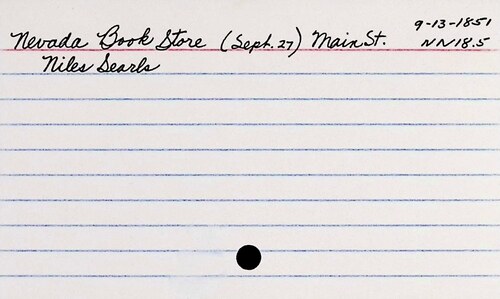 Nevada Book Store (Sept. 27) Main St. 9-13-1851
Niles Searls NN18.5